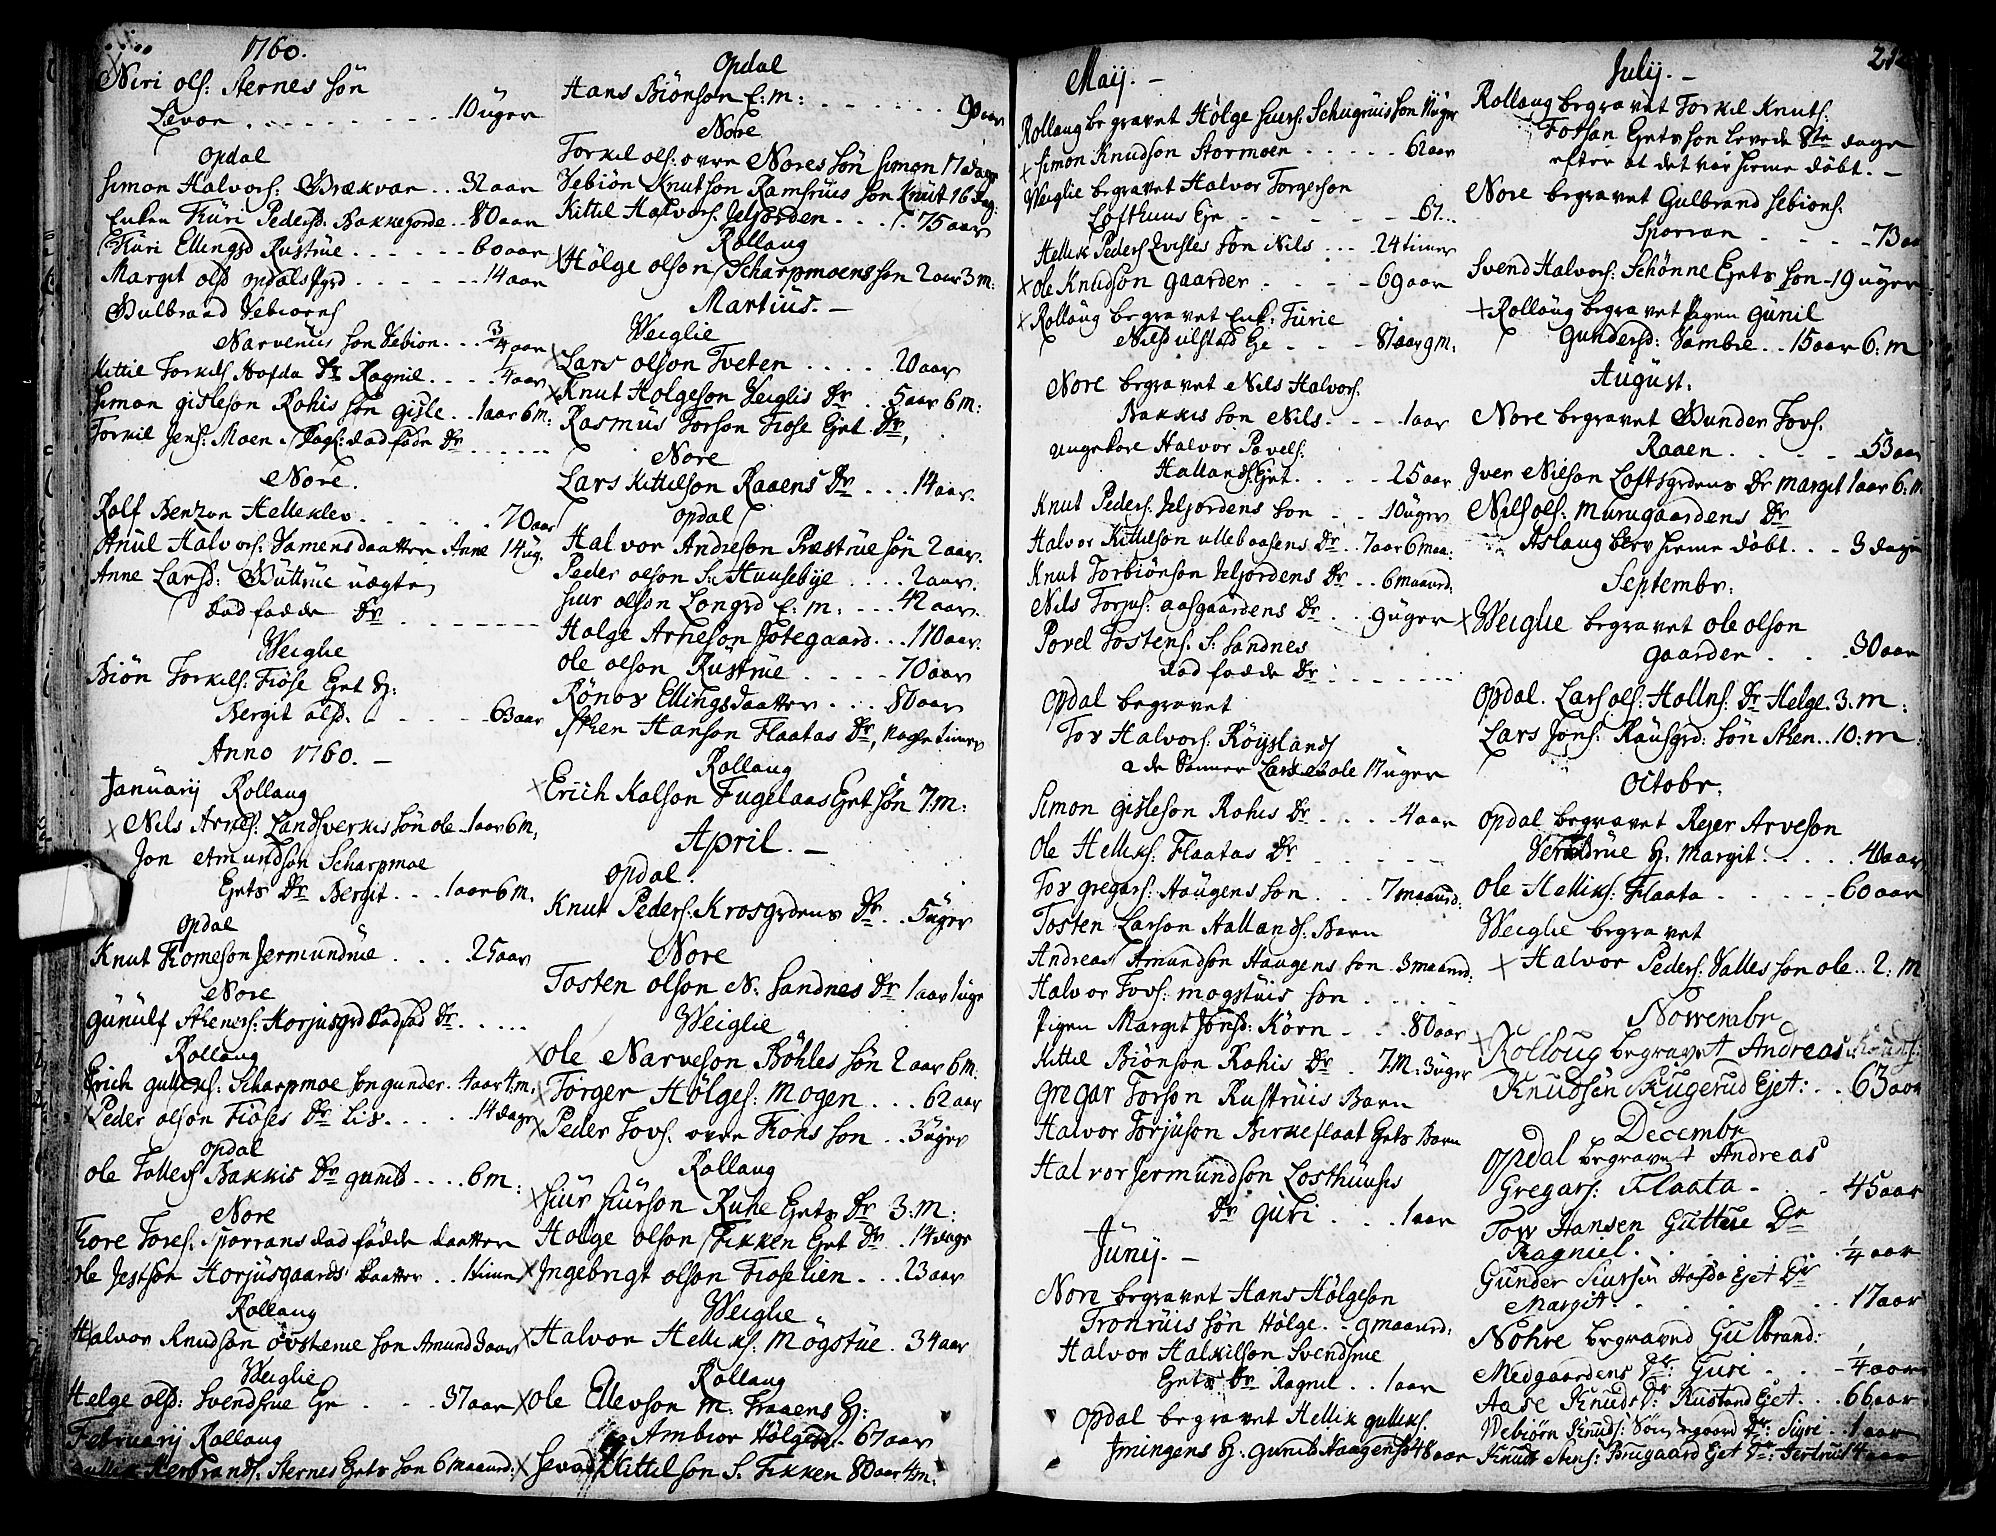 1760.
Niri ols: Sternes Søn
Levor . . . . . . . . . 10 uger
Opdal
Simon Halvors: Brækvar . . 32 aar
Enken Turi Pedersd: Bakkejorde . . 80 aar
Turi Ellingsd Rustrue . . . . . . 60 aar
Margit olsd opdals Jgrd . . . . . . 14 aar
Gulbrand Sebiørns
Narverüs Søn Sebion . . . 3/4 aar
Kittil Torkils Hofda Dr Ragnil . . . . 4 aar
Simon gisleson Rohis Søn gisle . . 1 aar 6 m:
Torkil Jens: Moen . dødføde Dr . . . . . .
Nore.
Rolf Benzon Helleklev . . . . . . 70 aar
Anül Halvors: Samens daatter Anne 14 ug.
Anne Larsd: Büttrue uægte
dødfødde Dr . . . . . . .
Weiglie
Biön Torkils: Fiöse Ejet H:
Bergit olsd. . . . . . 63 aar
Anno 1760. —
Januarij Rollaug
× Nils Arnes: Landsverkis Søn ole . . 1 aar 6 m,
Jon Amundson Scharpmoe
Ejets Dr Bergit . . . 1 aar 6 m.
Opdal
Knut Tomeson Jermundrue . . . . 25 aar
Nore
Günülf Sthener: Horjusgrd dødfød Dr . . . . .
Rollaug
Erich gulliks: Scharpmoe Søn gunder . 4 aar 4 m.
× Peder olson Fioses Dr Liv . . . . . 14 dage
Opdal
ole Tolless Bakkis Dr gunild . . . . 6 m:
Nore
Tore Tores: Sporrans dødfødde daatter
ole Jestson Horjüsgaards daatter . . 1 time
Rollaug
Halvor Knudson övsteme Søn Amund 3 aar
Weiglie
Helge olsd: Svendsrue Eje . . . . 37 aar
Februarij Rollaug
Herbrands: Sternes Ejets Søn 6 maaned:
Opdal
Hans Biönson E: m: . . . . . . . 90 aar
Nore
Torkil ols: ovre Nores Søn Simon 17 dage
Sebiön Knutson Ramsrüs Søn Knüt 16 dag:
Kittil Halvors: Jeljorden . . . . 75 aar
Rollaug
× Hölge olson Scharpmoens Søn 2 aar 3 m:
Martius. —
Weiglie
× Lars olson Tveten . . . . . 20 aar
× Knut Holgeson Weiglis Dr . . 5 aar 6 m:
Rasmüs Torson Fiose Ejet Dr,
Nore
Lars Kittilson Raaens Dr . . . 14 aar.
Opdal
Halvor Andreson Præstrüe Søn 2 aar.
Peder olson S: Huusebÿe . . . . 2 aar.
Siur olson Longrd E: m: . . . 42 aar.
Holge Arneson Jotegaard . . . 110 aar.
ole olson Rüstrüe . . . . . 70 aar
Rönov Ellingsdaatter . . . 80 aar
Sthen Hanson Flaatas Dr, nogle timer
Rollaug
× Erich Kalson Fugelaas Ejet Søn 7. m:
April. —
Opdal.
Knut Peders: Krosgrdens Dr . . 5 üger
Nore
Tosten olson N: Sandnes Dr 1 aar 1 uge
Weiglie
× ole Narveson Böhles Søn 2 aar 6 m:
× Torger Hölges: Mogen . . . 62 aar
× Peder Tovs: ovre Fiöns Søn . . 3 üger
Rollaug
× Siur Siurson Ruhe Ejets Dr 3. m:
Holge olson Fikken Ejet Dr . . 14 dage
× Jngebrigt olson Fioselien . . . 23 aar
Weiglie
× Halvor Helliks: Mögstüe . 34 aar
Rollaug
× ole Ellevson M: Traaens H:
Ambior Hölgesd. . . 67 aar
× Sevald Kittilson S: Fikken 80 aar 4 m:
Maij. —
Rollaug begravet Hölge Siurs: Schugrüis Søn 11 uger
× Simon Knudson Stormoen . . . . . 62 aar
Weiglie begravet Halvor Torgerson
Lofthuus Eje . . . . . . 67 . .
Hellik Peders: Qvisles Søn Nils . . . 24 timer
× ole Knudson Gaarder . . . . . 69 aar
× Rollaug begravet Enk: Turie
Nilsd ulstad Eje . . . . 81 aar 9 m:
Nore begravet Nils Halvors:
Bakkis Søn Nils . . . 1 aar
ungekarl Halvor Povels:
Hallands: Ejet . . . . . 25 aar
Knut Peders: Jeljordens Søn . . . 10 uger
Halvor Kittilson ullebaasens Dr . . 7 aar 6 maa:
Knut Torbiönson Jeljordens Dr . . 6 maaned:
Nils Torjus: aasgaardens Dr . . 9 üger
Povel Tostens: S: Sandnes
dødfødde Dr . . . . . . . .
Opdal begravet
Tov Halvors: Röyslands
2 de Sønner Lars et ole 17 uger
Simon gisleson Rohis Dr . . . . 4 aar
ole Helliks: Flaatas Dr . . . . . .
Tov gregars: Haügens Søn . . . . 7 maaned:
Tosten Larson Hallands: Barn
Andreas Amundson Haugens Søn . 3 maaned:
Halvor Tovs: mogstüis Søn . . . . .
Pigen Margit Jonsd: Körn . . . 80 aar
Kittil Biönson Rohis Dr . . 7. M: 3 üger
Gregar Torson Rustrüis Barn
Halvor Torjüson Birkeflaat Ejets Barn
Halvor Jermundson Losthuusis
Dr Guri . . . . 1 aar
Junij. —
Nore begravet Hans Hölgeson
Tronrüis Søn Hölge . . 9 maaned:
Halvor Halkilson Svendsrue
Ejets Dr Ragnil . . 1 aar
Opdal begravet Hellik gulliks.
Jmingens H: gunild Haagens: 48 aar
Julij. —
Rollaug begravet Torkil Knuts:
Fossan Ejets Søn levede 8te dage
efter at det var hieme døbt. —
Nore begravet Gulbrand Sebions:
Sporran . . . . . 73 aar
Svend Halvors: Schönne Ejets Søn . 19 uger
× Rollaug begravet Pigen Günil
Gundersd: Vambie . . 15 aar 6: m
August.
Nore begravet Gunder Tovs.
Raaen . . . . . 53 aar
Jver Nilson Loftsgrdens Dr Margit 1 aar 6: m
Nils ols: Murugaardens Dr
Aslaug blev hieme døbt . . . 3 dage
Septembr:
× Weiglie begravet ole olson
Gaarder . . . 30 aar
Opdal. Lars ols: Hollns: Dr Helge . 3. m:
Lars Jöns: Raüsgrd: Søn Sthen . . 10: m:
Octobr:
Opdal begravet Rejer Arveson
H: Margit . . . . . 40 aar
ole Helliks: Flaata . . . . . . 60 aar
Weiglie begravet
× Halvor Peders: Valles Søn ole . . 2: m
Novembr
× Rollaug begravet Andreas
Knudsön Skugerud Ejet: . . 63 aar
Decembr
Opdal begravet Andreas
Gregars: Flaata . . . . 45 aar
Tov Hansen Guttue Dr
Ragniel . . . . . . 1/4 aar
Gunder Siursön Hofda Ejet Dr
Margit . . . . . . 17 aar
Nohre begraved Gulbrand:
Medgaardens Dr: Guri . . . 1/4 aar
Aase Knuds Dr: Rustand Ejet . . 66 aar
Webiørn Knuds: Dr: Siri . . 1 aar
Knud Stens: Brugaard Ejet Dr: Jertrüs 4 aar